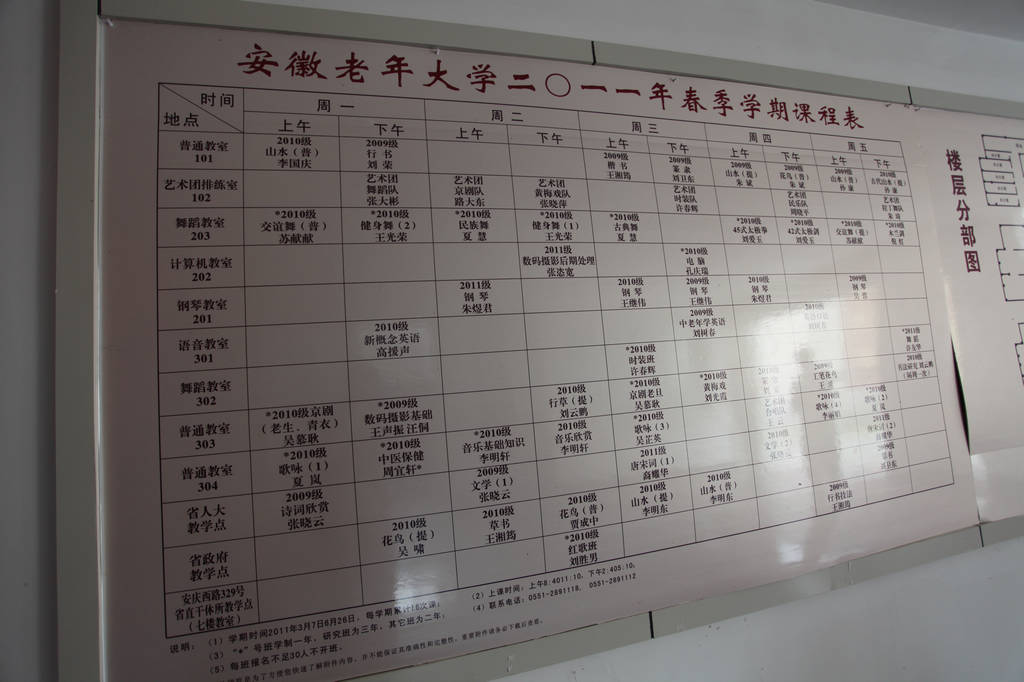 安徽老年大学二〇一一年春季学期课程表
时间
地点
周一 周二 周三 周四 周五
上午 下午 上午 下午 上午 下午 上午 下午 上午 下午
普通教室
101
2010级
山水（普）
李国庆
2009级
行书
刘荣
2009级
楷书
王湘筠
2009级
篆隶
刘卫东
2010级
山水（提）
朱斌
2010级
花鸟（普）
朱斌
2010级
山水（普）
孙康
2010级
古代山水（提）
孙康
艺术团排练室
102
艺术团
舞蹈队
张大彬
艺术团
京剧队
路大东
艺术团
黄梅戏队
张晓萍
艺术团
时装队
许春辉
艺术团
民乐队
周晓平
艺术团
舞蹈教室
203
*2010级
交谊舞（普）
苏献献
*2010级
健身舞（2）
王光荣
*2010级
民族舞
夏慧
*2010级
健身舞（1）
王光荣
*2010级
古典舞
夏慧
*2010级
45式太极拳
刘爱玉
*2010级
42式太极剑
刘爱玉
*2010级
交谊舞（提）
苏献献
*2010级
木兰剑
计算机教室
202
2011级
数码摄影后期处理
张恣宽
*2010级
电脑
孔庆瑞
钢琴教室
201
2011级
钢琴
朱煜君
2010级
钢琴
王继伟
2009级
钢琴
王继伟
2010级
钢琴
朱煜君
2009级
钢琴
语音教室
301
2010级
新概念英语
高援声
2009级
中老年学英语
刘树春
2010级
*2011级
舞蹈
舞蹈教室
302
*2010级
时装班
许春辉
2010级
书法研究 刘云鹏
（隔周一次）
普通教室
303
*2010级京剧
（老生、青衣）
吴慕耿
*2009级
数码摄影基础
王声振 汪侗
2010级
行草（提）
刘云鹏
*2010级
京剧老旦
吴慕耿
*2010级
黄梅戏
刘光霞
工笔花鸟
*2010级
歌咏（2）
夏岚
普通教室
304
*2010级
歌咏（1）
夏岚
*2010级
中医保健
周宜轩*
*2010级
音乐基础知识
李明轩
2010级
音乐欣赏
李明轩
*2010级
歌咏（3）
吴芷英
艺术团
合唱队
*2010级
歌咏（4）
李丽娟
2011级
唐宋词（2）
省人大
教学点
2009级
诗词欣赏
张晓云
2009级
文学（1）
张晓云
2011级
唐宋词（1）
高耀华
2010级
文学（2）
张晓云
2009级
省政府
教学点
2010级
花鸟（提）
吴啸
2010级
草书
王湘筠
2010级
花鸟（普）
贾成中
2010级
山水（提）
李明东
2010级
山水（普）
李明东
2009级
行书技法
王湘筠
安庆西路329号
省直干休所教学点
（七楼教室）
*2010级
红歌班
刘胜男
说明：（1）学期时间2011年3月7日6月26日，每学期累计16次课；
（2）上课时间：上午8:4011:10，下午2:405:10；
（3）“*”号班学制一年，研究班为三年，其它班为二年；
（4）联系电话：0551-2891118，0551-2891112
（5）每班报名不足30人不开班。
为了方便您快速了解附件内容，并不能保证其准确性和完整性，重要附件请务必下载后查看。
楼层分部图